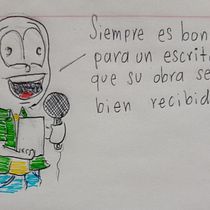 Siempre es bon
para un escrit
que su obra se
bien recibid